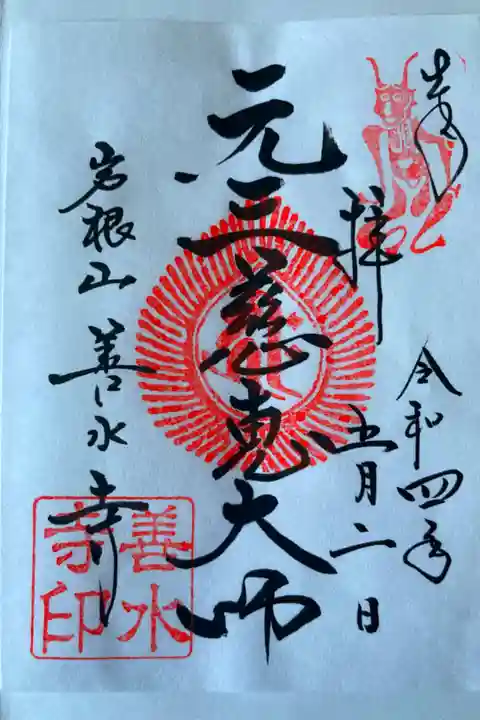 奉拝
令和四年
五月二日
元三慈恵大師
岩根山善水寺
善水
寺印